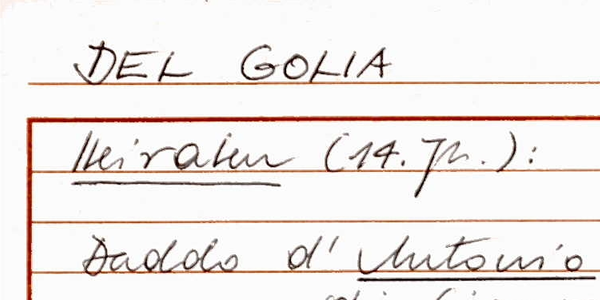 DEL GOLIA
Heiraten (14. Jh.):
Daddo d'Antonio